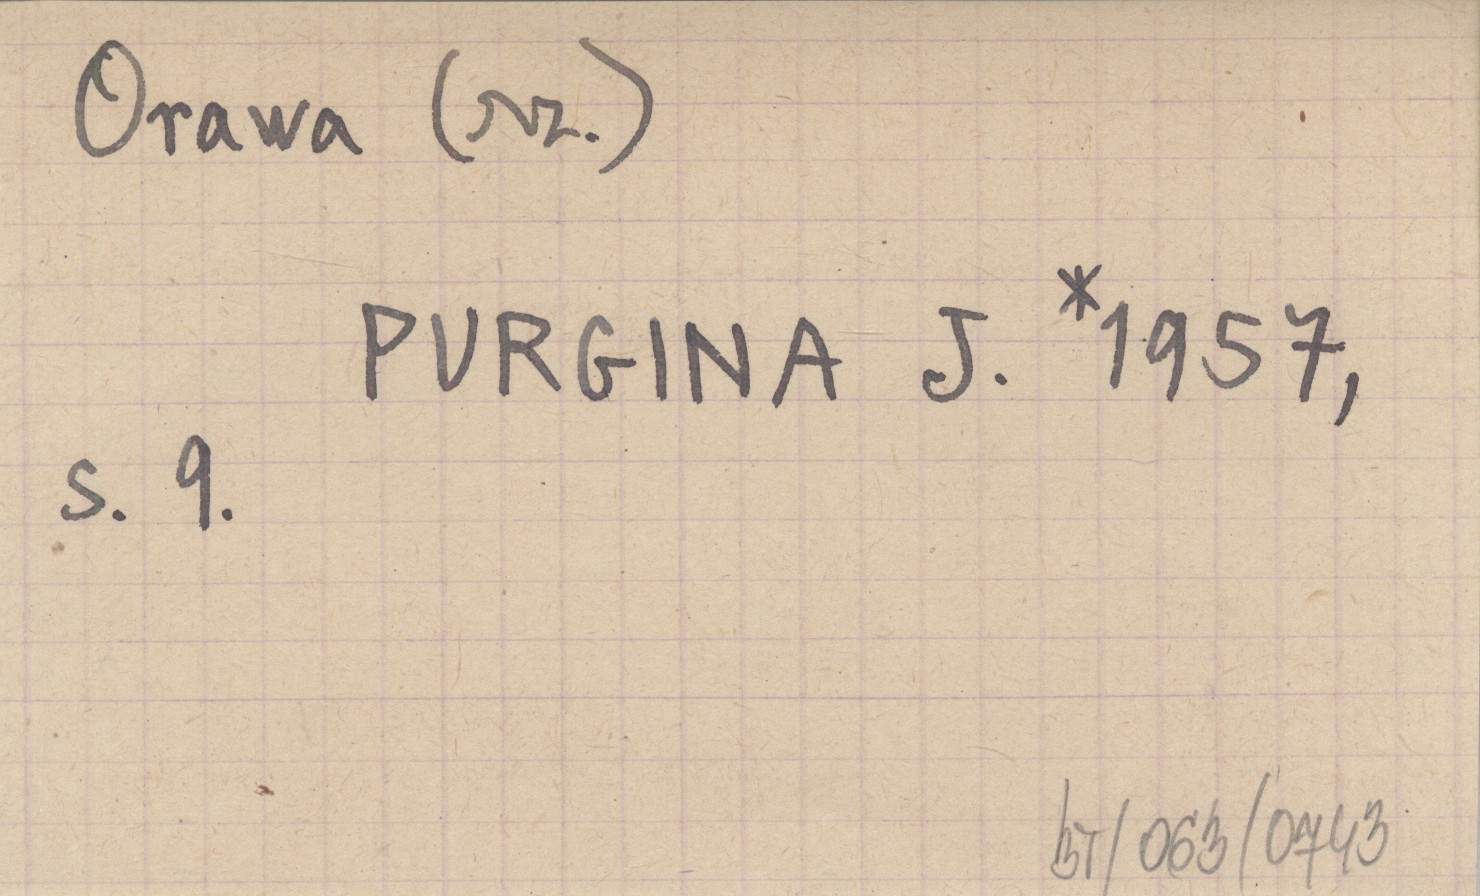 Orawa (rz.)
PURGINA J. *1957,
s. 9.
BT/063/0743